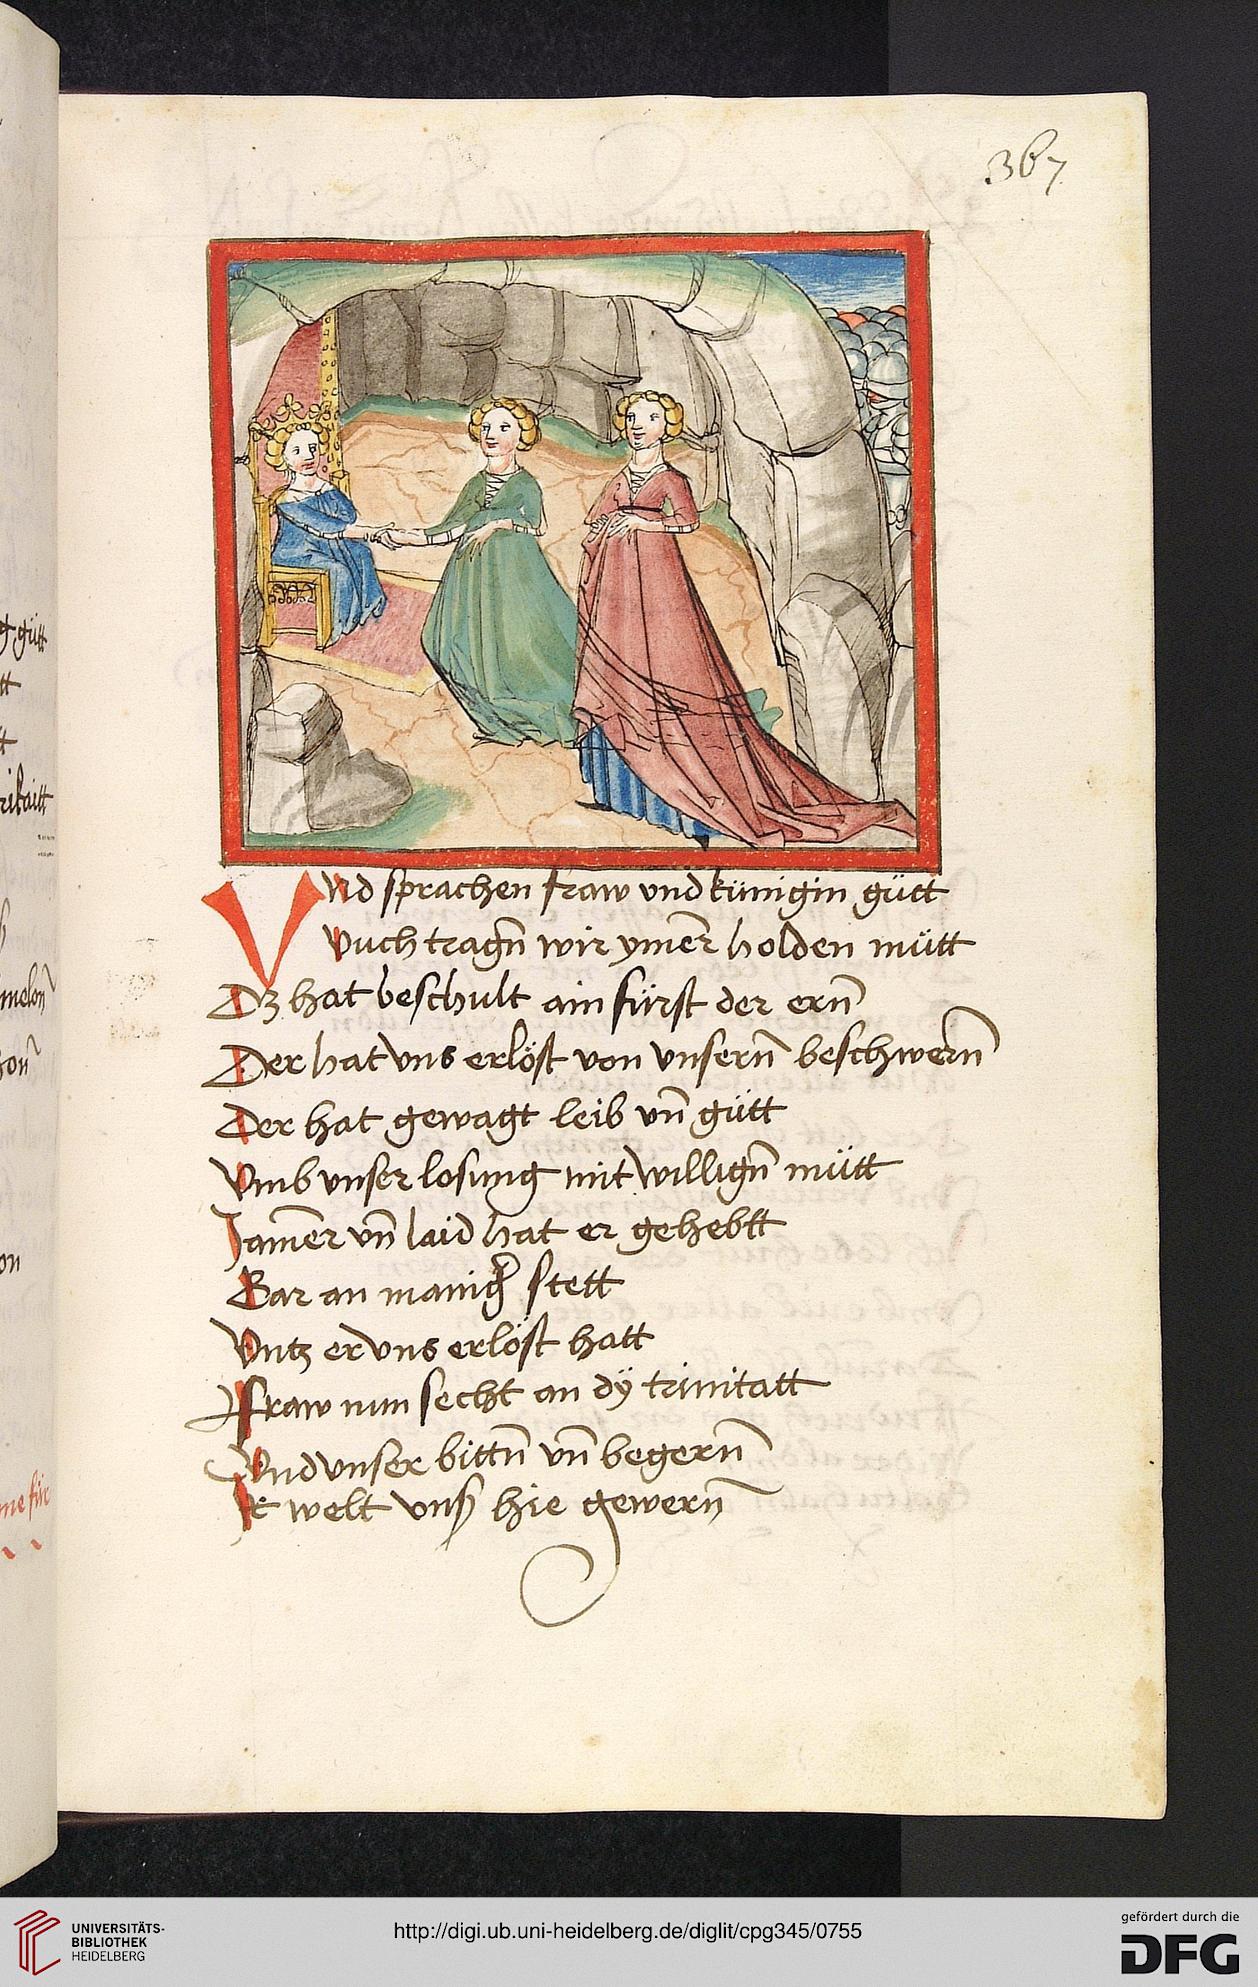 367
Vnd sprachen fraw vnd künigin gütt
Vuch tragn̄ wir ym̄er holden mütt
Dz hat beschult ain fürst der ern̄
Der hat vns erlöst von vnsern̄ beschwern̄
Der hat gewagt leib vn̄ gütt
Vmb vnser losung mit willign̄ mütt
Jam̄er vn̄ laid hat er gehebtt
Gar an maniḡ stett
Vntz er vns erlöst hatt
Fraw nun secht an dÿ trinitatt
Vnd vnser bittn̄ vn̄ begern̄
Ir welt vnß hie gewern̄
gütt
tt
rikaitt
UNIVERSITÄTS-
BIBLIOTHEK
HEIDELBERG
http://digi.ub.uni-heidelberg.de/diglit/cpg345/0755
gefördert durch die
DFG